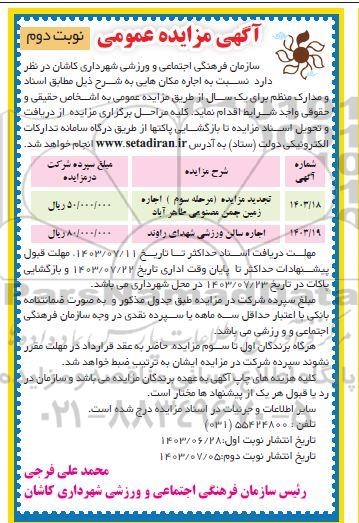 آگهی مزایده عمومی
نوبت دوم
سازمان فرهنگی اجتماعی و ورزشی شهرداری کاشان در نظر
دارد نسبت به اجاره مکان هایی به شرح ذیل مطابق اسناد
و مدارک منظم برای یک سال از طریق مزایده عمومی به اشخاص حقیقی و
حقوقی واجد شرایط اقدام نماید. کلیه مراحل برگزاری مزایده از دریافت
و تحویل اسناد مزایده تا بازگشایی پاکتها از طریق درگاه سامانه تدارکات
الکترونیکی دولت (ستاد) به آدرس www.setadiran.ir انجام خواهد شد.
شماره آگهی شرح مزایده مبلغ سپرده شرکت درمزایده
۱۴۰۳/۱۸ تجدید مزایده (مرحله سوم ) اجاره زمین چمن مصنوعی طاهر آباد ۵۰/۰۰۰/۰۰۰ ریال
۱۴۰۳/۱۹ اجاره سالن ورزشی شهدای راوند ۸۰/۰۰۰/۰۰۰ ریال
مهلت دریافت اسناد حداکثر تا تاریخ ۱۴۰۳/۰۷/۱۱. مهلت قبول
پیشنهادات حداکثر تا پایان وقت اداری تاریخ ۱۴۰۳/۰۷/۲۲ و بازگشایی
پاکات در تاریخ ۱۴۰۳/۰۷/۲۳ در محل شهرداری می باشد.
مبلغ سپرده شرکت در مزایده طبق جدول مذکور و به صورت ضمانتنامه
بانکی با اعتبار حداقل سه ماهه یا سپرده نقدی در وجه سازمان فرهنگی
اجتماعی و ورزشی می باشد.
هرگاه برندگان اول تا سوم مزایده حاضر به عقد قرارداد در مهلت مقرر
نشوند سپرده شرکت در مزایده ایشان به ترتیب ضبط خواهد شد.
کلیه هزینه های چاپ آگهی به عهده برندگان مزایده می باشد و سازمان در
رد یا قبول هر یک از پیشنهاد ها مختار است.
سایر اطلاعات و جزییات در اسناد مزایده درج شده است.
تلفن : ۵۵۴۲۴۸۰۰ (۰۳۱)
تاریخ انتشار نوبت اول: ۱۴۰۳/۰۶/۲۸
تاریخ انتشار نوبت دوم: ۱۴۰۳/۰۷/۰۵
محمد علی فرجی
رئیس سازمان فرهنگی اجتماعی و ورزشی شهرداری کاشان